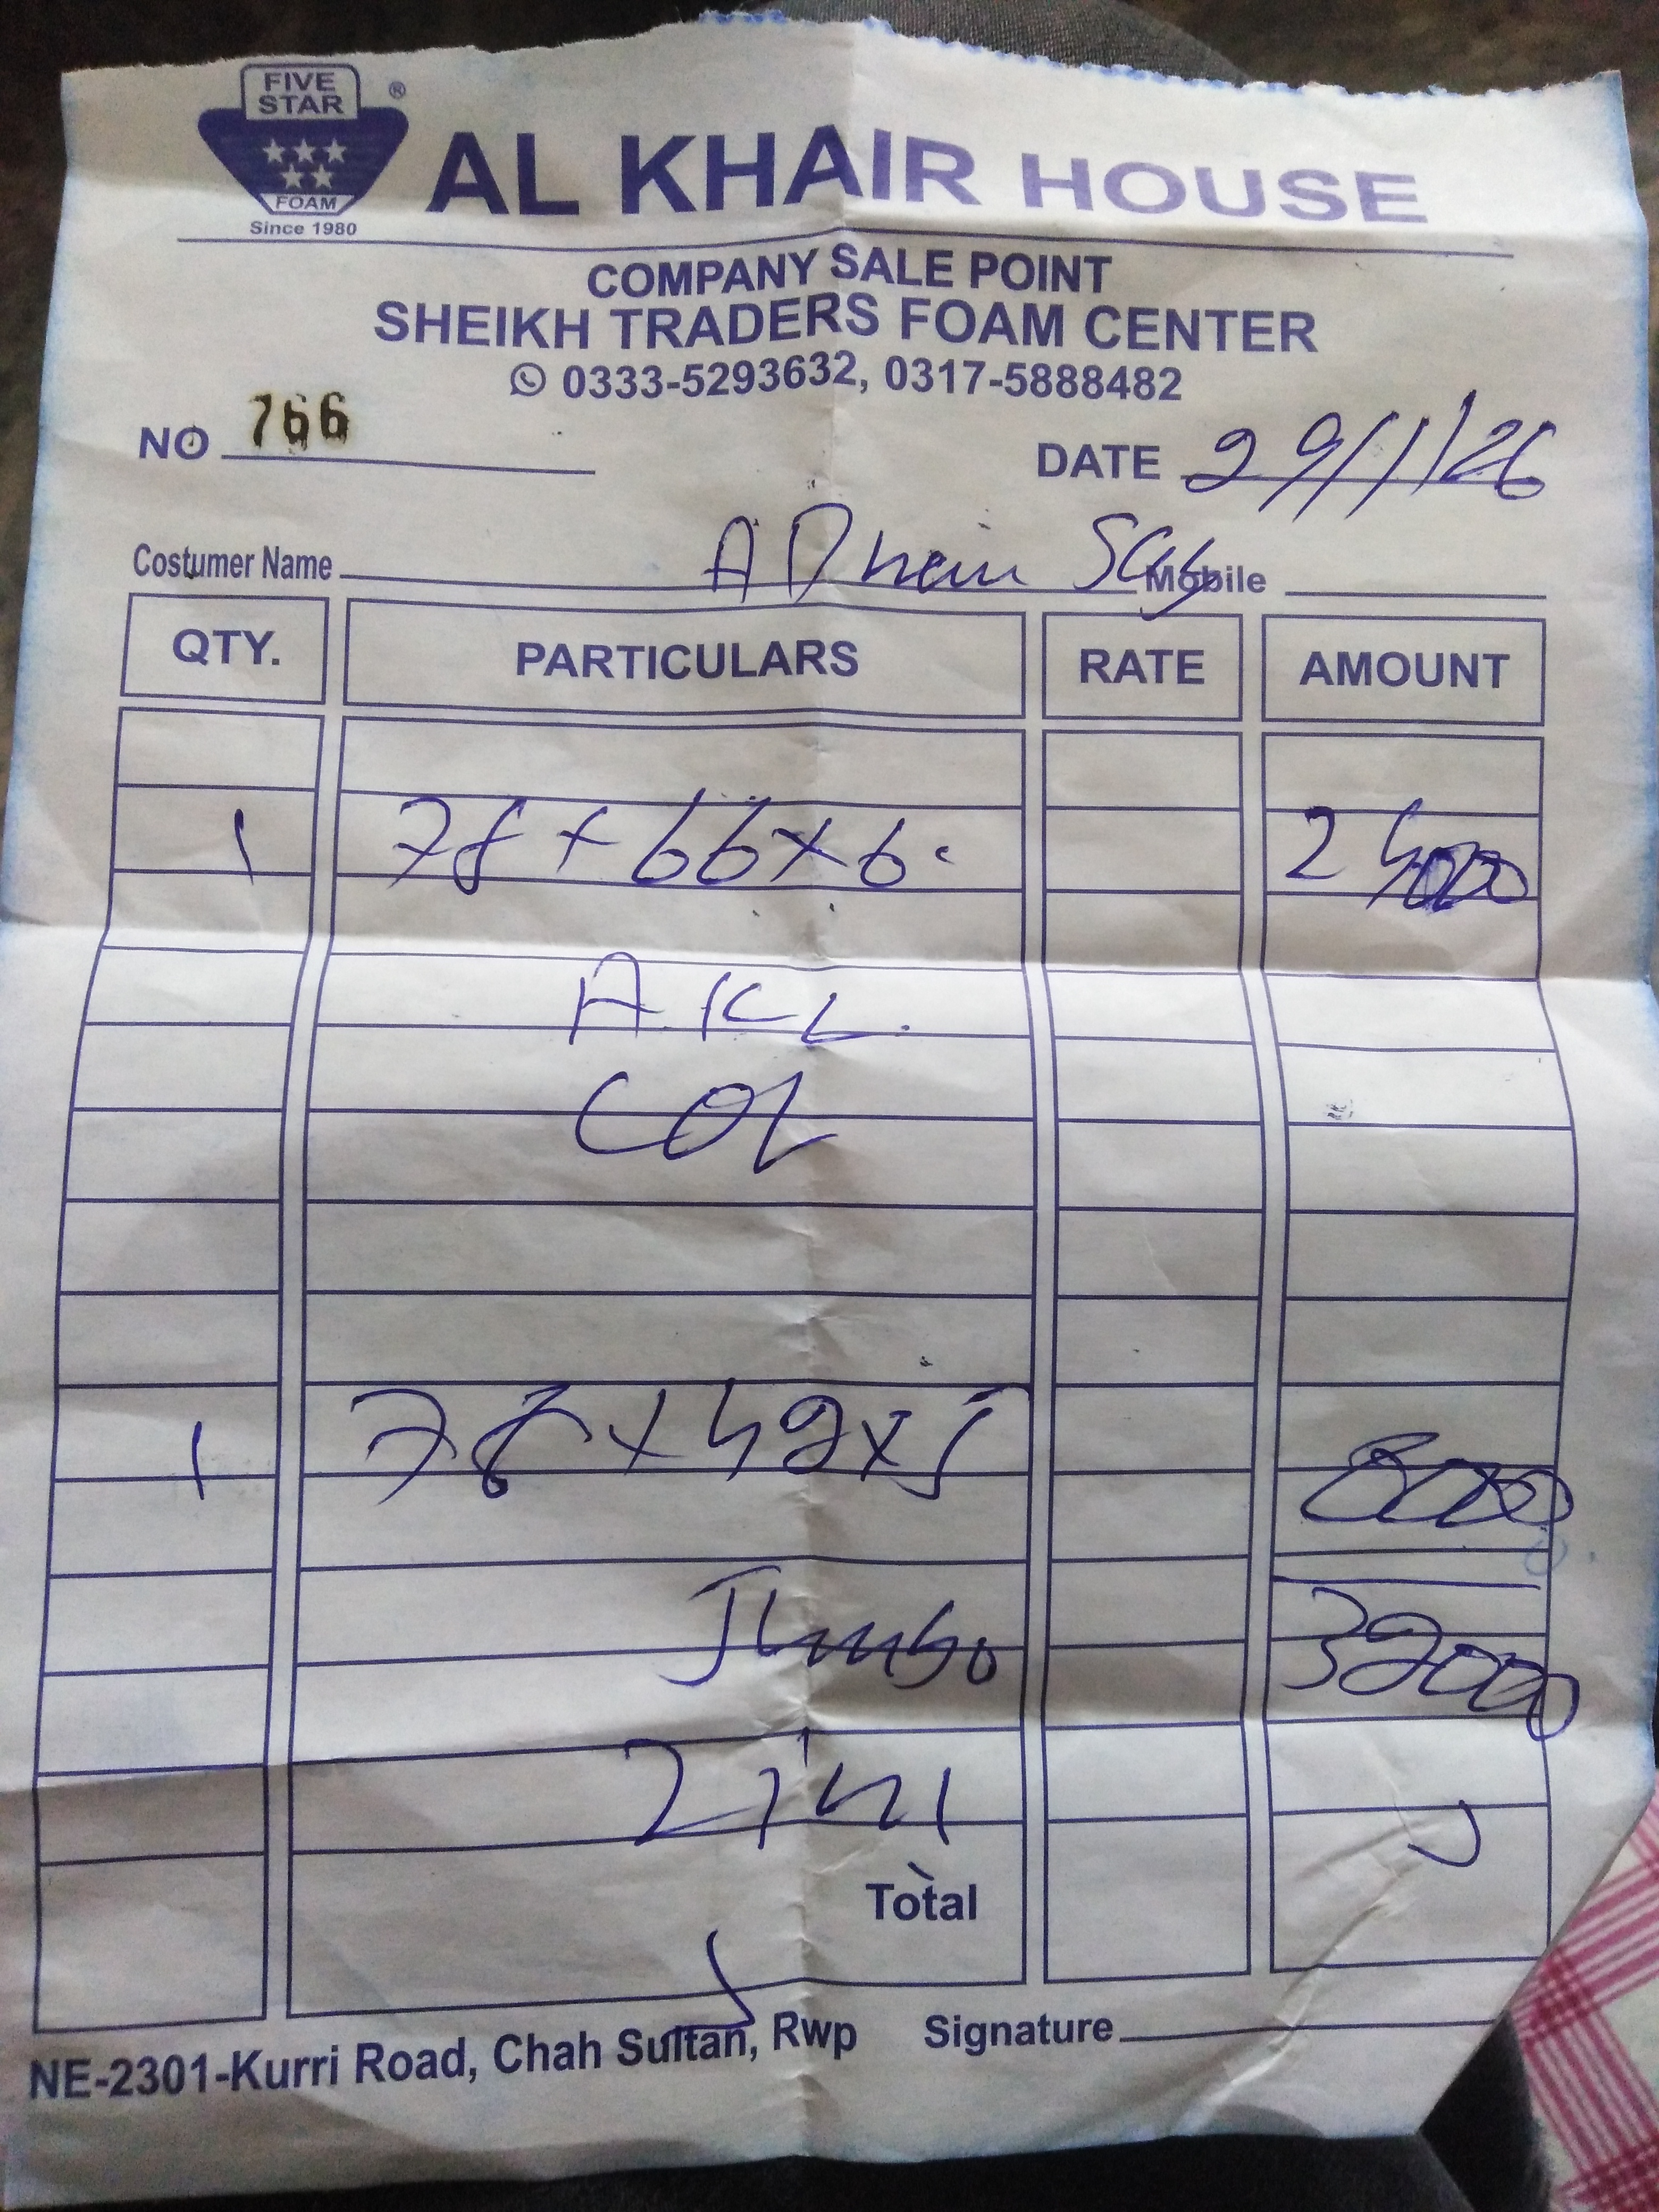 FIVE
STAR
FOAM
®
Since 1980
AL KHAIR HOUSE
COMPANY SALE POINT
SHEIKH TRADERS FOAM CENTER
0333-5293632, 0317-5888482
NO 766
DATE 29/1/26
Costumer Name Mobile
QTY. PARTICULARS RATE AMOUNT
1 78 x 66 x 6 24000
A.K.
COL
1 78 x 42 x 5 8000
Jumbo 32000
Total
NE-2301-Kurri Road, Chah Sultan, Rwp Signature